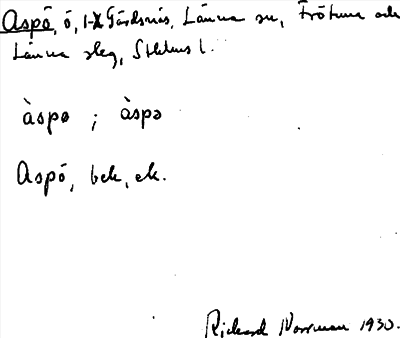 Aspö, ö, 1 Gärdsnäs, Länna sn, Frötuna och
Länna skg, Sthlms l.
àspø ; àspə
Aspö, bek, ek.
Rickard Norrman 1930.